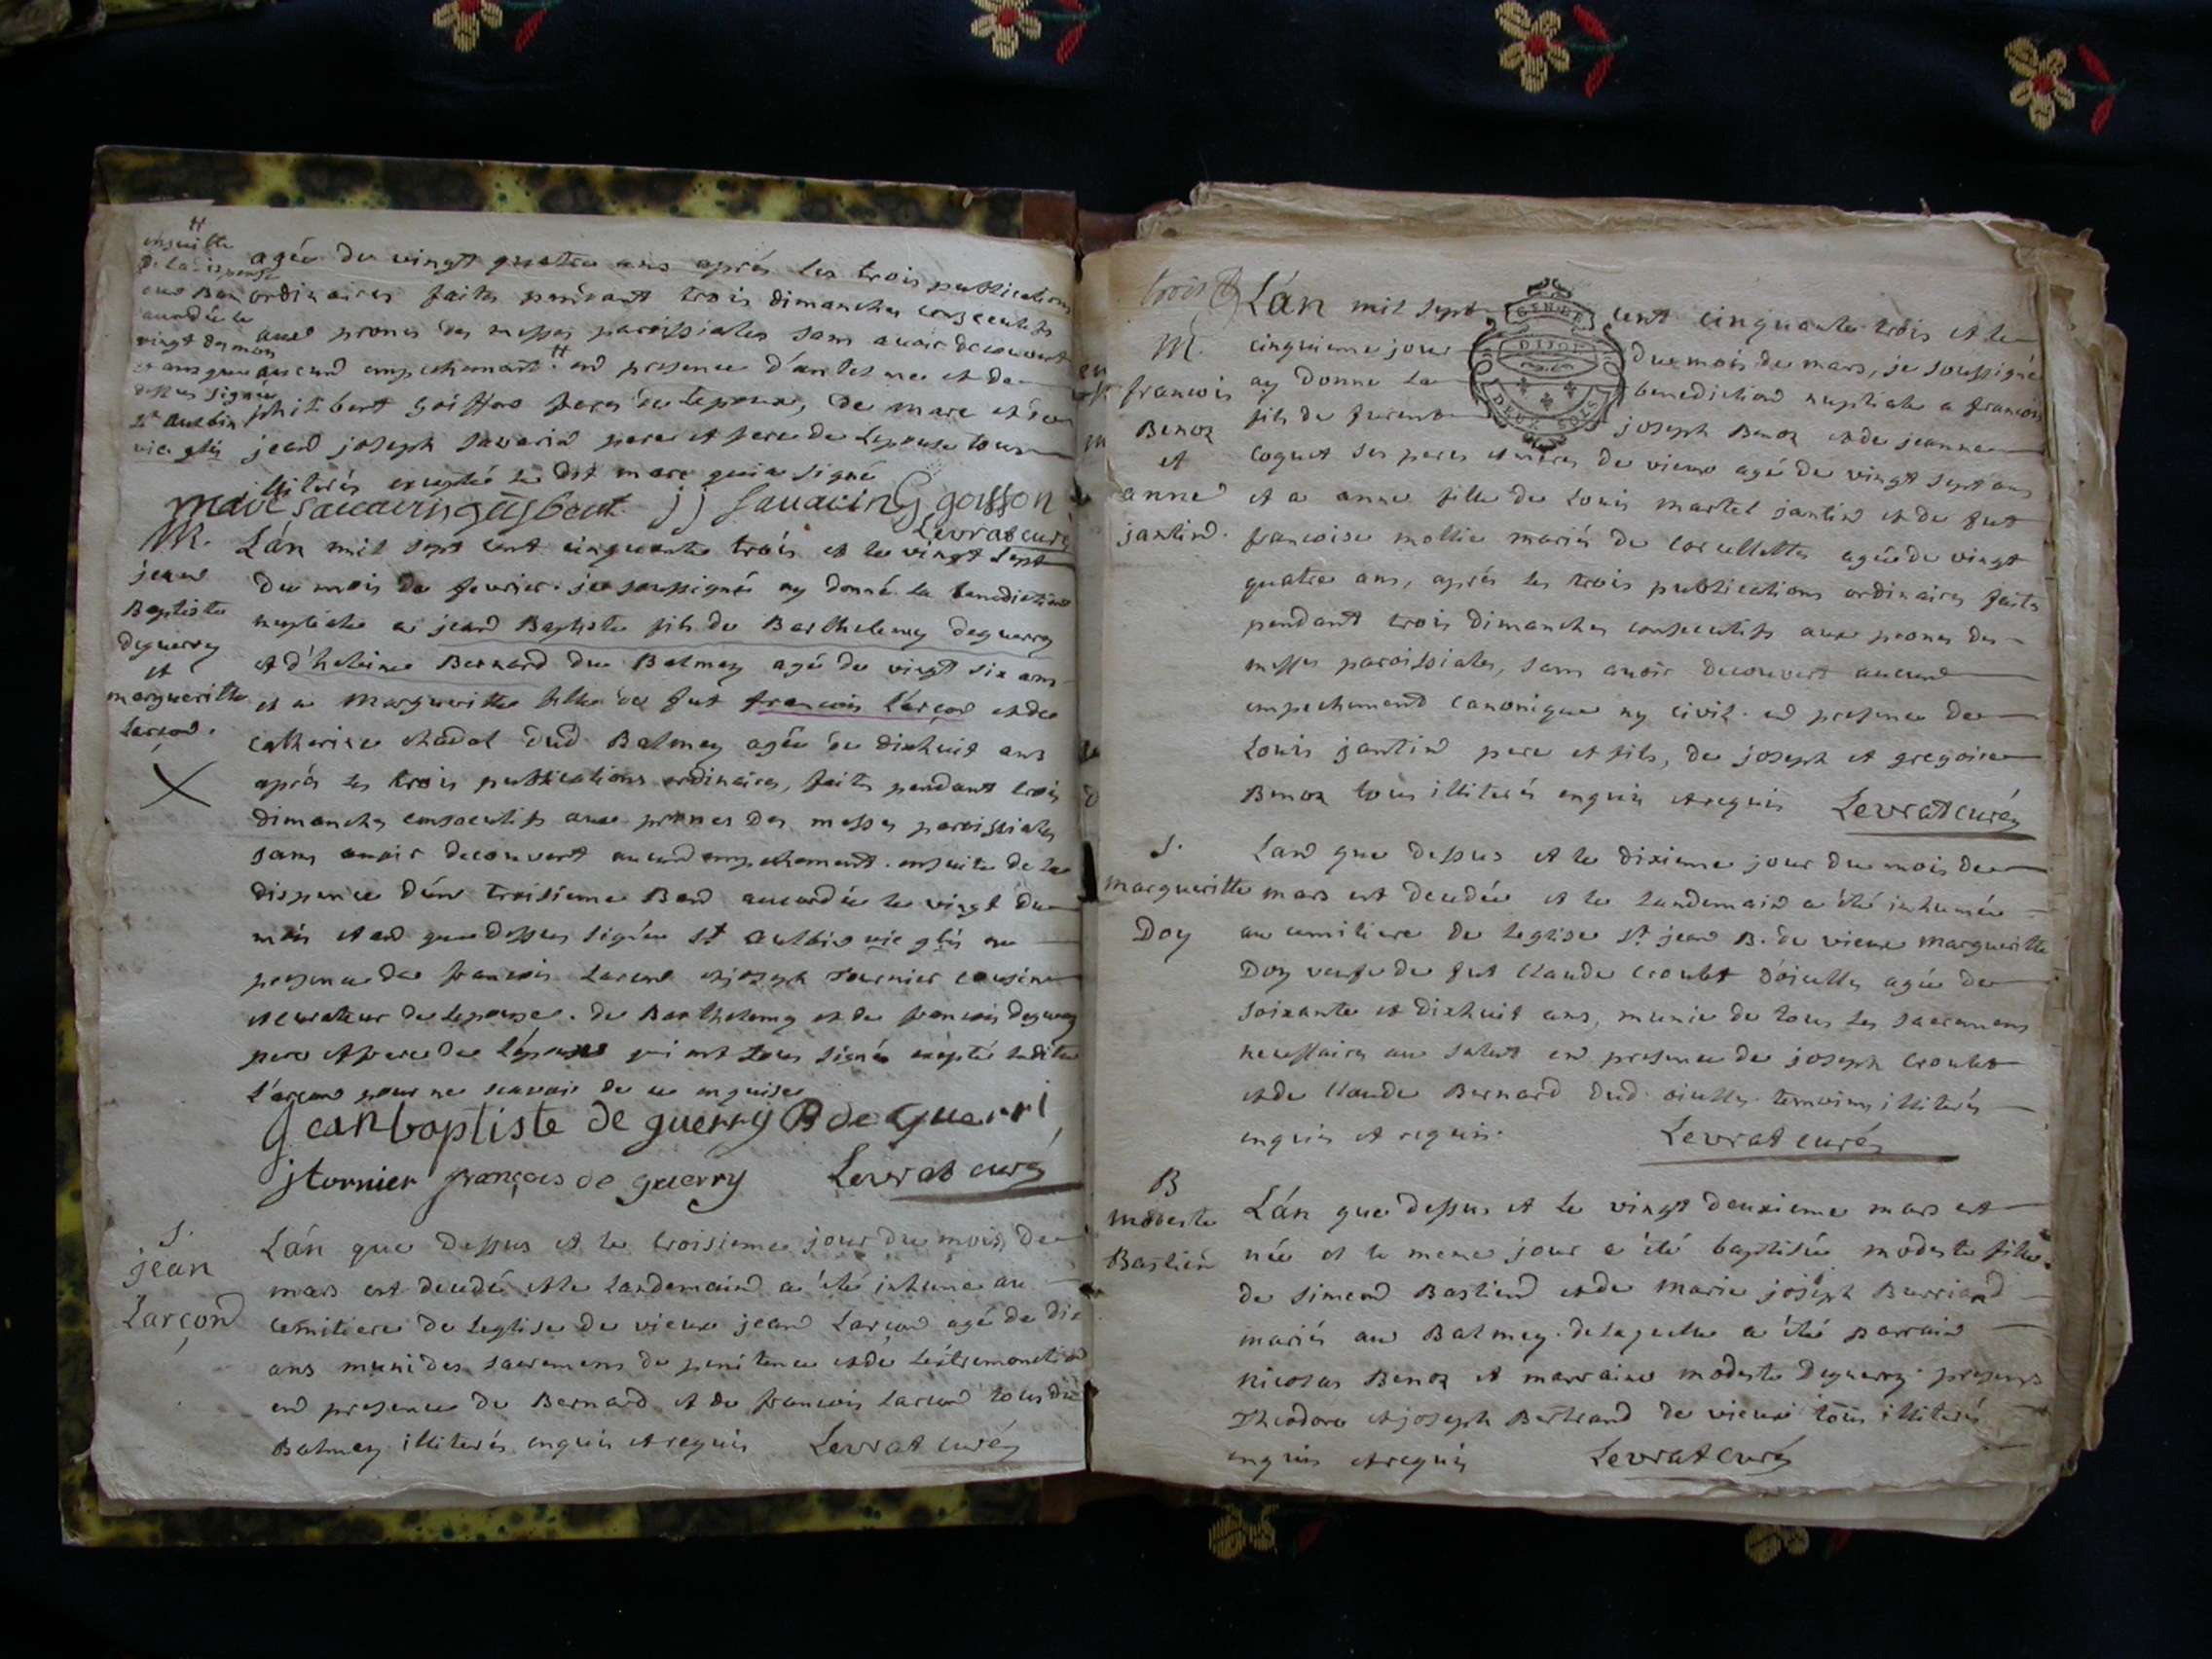 agée de vingt quatre ans aprés les trois publications
ordinaires faites pendant trois dimanches consecutifs
aux prones des messes paroissiales sans avoir decouvert
aucund empechement # end presence
philibert goiffon frere de Lepoux, de marc et de
jeand joseph savarin pere et frere de Lepouse tous
illiterés excepté le dit marc qui a signé
j j savarin G goiffon
Levrat curé
M.
jean
Baptiste
deguerry
et
margueritte
Larçond.
Lán mil sept cent cinquante trois et le vingt sept
du mois de fevrier. je soussignés ay donné la benediction
nuptiale a jeand Baptiste fils de Barthelemy deguerry
et d'heleine Bernard du Balmey agé de vingt six ans
et a Margueritte fille de fut francois Larçond et de
catherine chadal dud Balmey agée de dixhuit ans
aprés les trois publications ordinaires, faites pendant trois
dimanches consecutifs aux prones des messes paroissiales
sans avoir decouvert aucund empechement. ensuite de la
dispence dúne troisieme Band accordée le vingt du
mois et and que dessus signée St Aulbin vic glis en
presence de francois Larcond et joseph Tournier cousin
et curateur de Lepouse. de Barthelemy et de francois deguerry
pere et frere de Lépoux qui ont tous signés exepté ladite
Larçond pour ne scavoir de ce enquise
jeanbaptiste de guerry B de Guerri
j tornier françois de guerry Levrat curé
S.
jean
Larçond
Lán que dessus et le troisieme jour du mois de
mars est decedé et le landemaind a été inhumé au
cemitiere de Leglise de vieux jeand Larçond agé de dix
ans muni des sacremens de penitence et de Lextremonction
end presence de Bernard et de francois Larcond tous du
Balmey illiterés enquis et requis Levrat curé
trois
M.
francois
Benoz
et
anne
jantind.
Lán mil sept cent cinquante trois et le
GEN DE
DIJON
DEUX SOLS
cinquieme jour du mois de mars, je soussigné
ay donné la benediction nuptiale a francois
fils de joseph Benoz et de jeanne
coquet ses peres et meres de vieux agé de vingt sept ans
et a anne fille de Louis martel jantind et de fut
francoise mollie mariés de corcellettes agée de vingt
quatre ans, aprés les trois publications ordinaires faites
pendant trois dimanches consecutifs aux prones des
messes paroissiales, sans avoir decouvert aucund
empechement canonique ny civil. end presence de
Louis jantind pere et fils, de joseph et gregoire
Benoz tous illiterés enquis et requis Levrat curé
S.
margueritte
Doy
Land que dessus et le dixieme jour du mois de
mars est decedée et le landemaind a été inhumée
au cemitiere de Leglise St jeand B. de vieux margueritte
Doy veufe de fut claude croulet d'oiculles agée de
soixante et dixhuit ans, munie de tous les sacremens
necessaires au salut end presence de joseph croulet
et de claude Bernard dud oiculles temoins illiterés
enquis et requis. Levrat curé
B
modeste
Bastien
Lán que dessus et le vingt deuxieme mars est
née et le meme jour a été baptisée modeste fille
de simeond Bastiend et de Marie joseph Burriand
mariés au Balmey. delaquelle a été parraind
nicolas Benoz et marraine modeste Deguerry. presents
Theodore et joseph Bertrand de vieux tous illiterés
enquis et requis Levrat curé